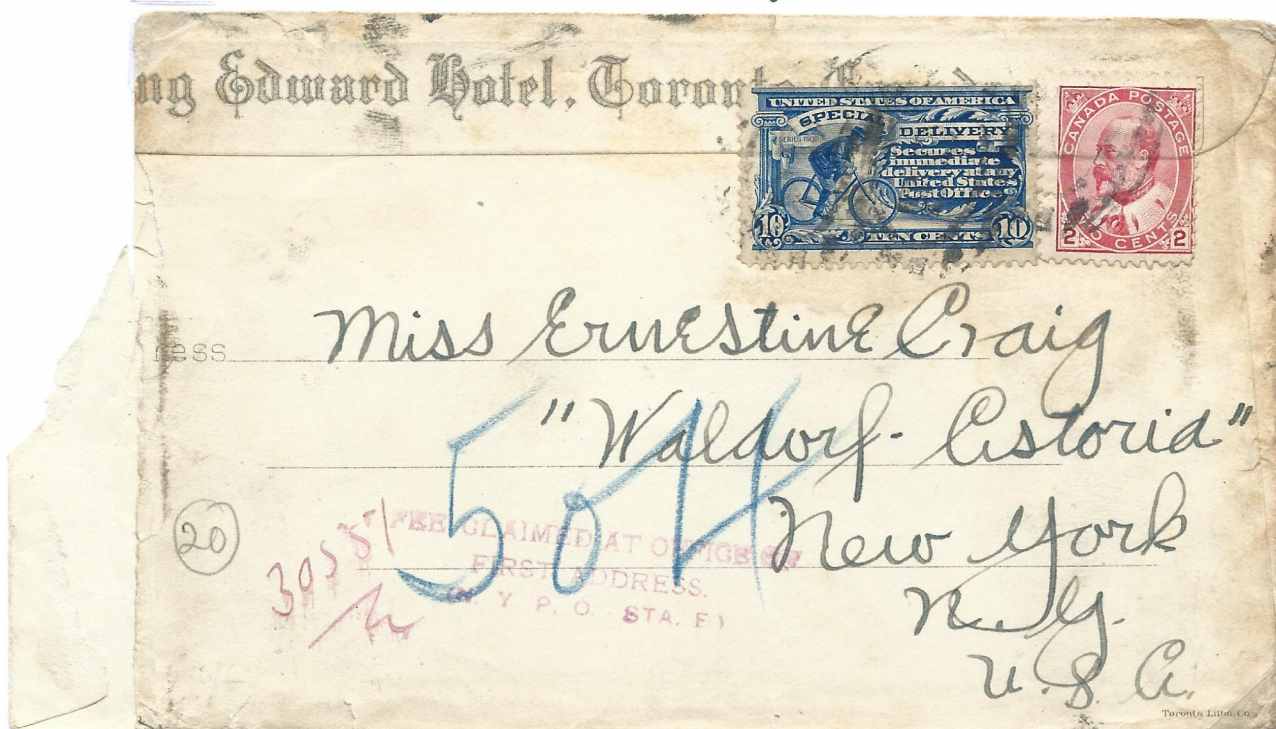 ng Edward Hotel, Toronto, Canada
UNITED STATES OF AMERICA
SPECIAL DELIVERY
SERIES 1902
Secures
immediate
delivery at any
United States
Post Office
10 TEN CENTS 10
CANADA POSTAGE
2 TWO CENTS 2
ress
Miss Ernestine Craig
"Waldorf-Astoria"
New York
N.Y.
U.S.A.
504
20
39581
FEE CLAIMED AT OFFICE OF
FIRST ADDRESS.
(N. Y. P. O. STA. F)
Toronto Litho. Co.